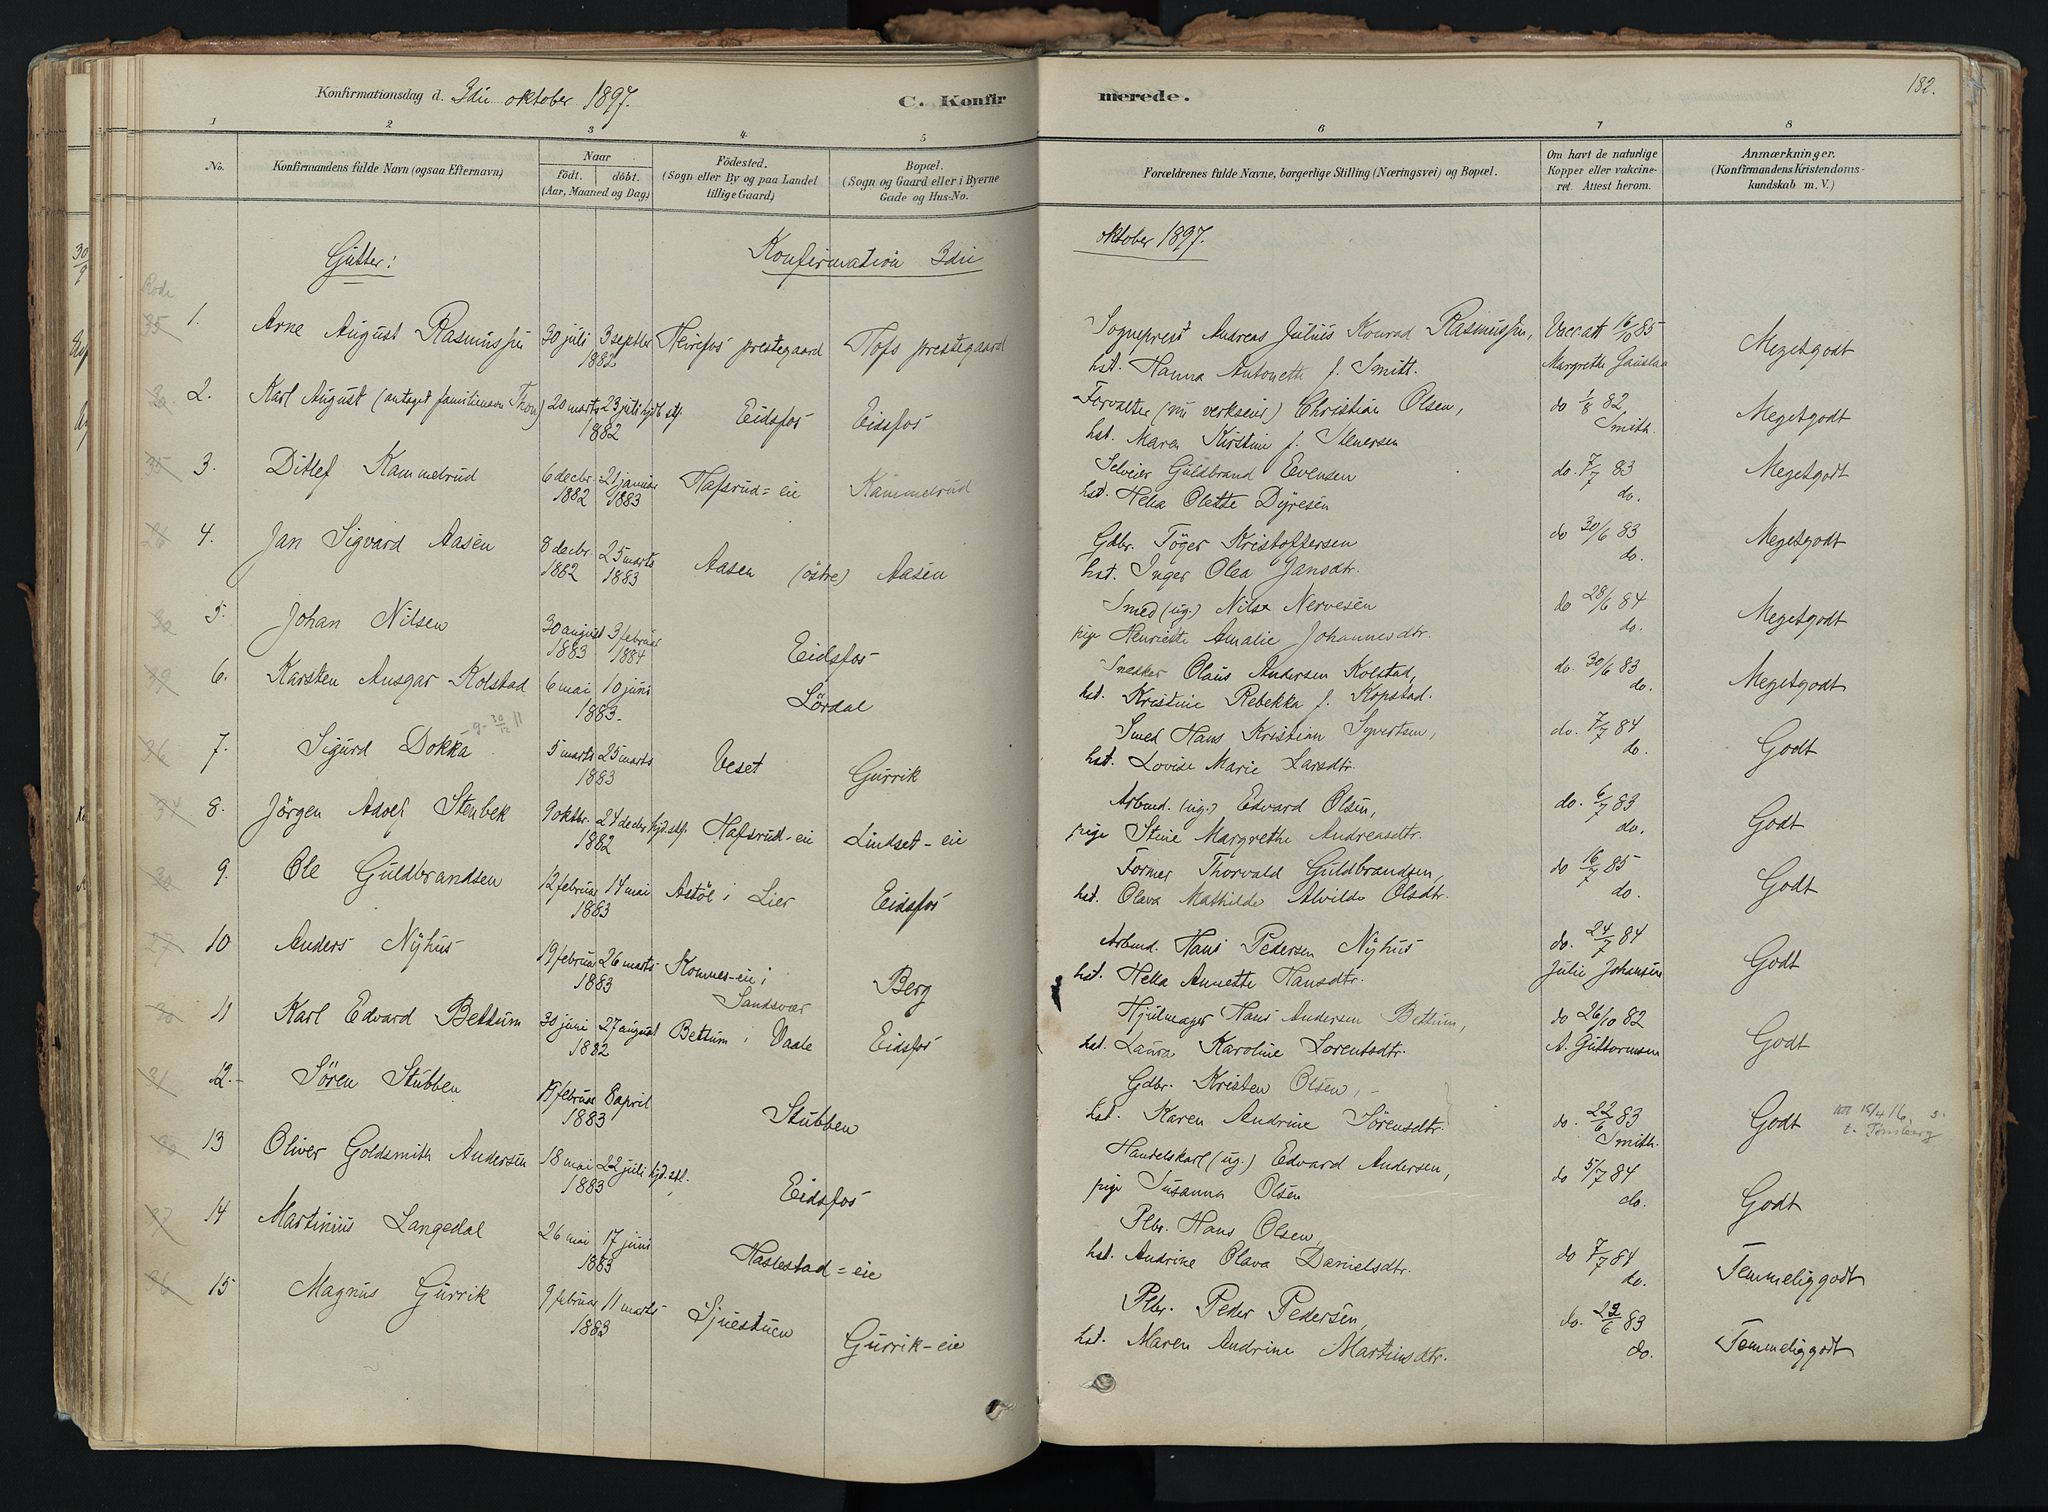 182.
Konfirmationsdag d. 3die oktober 1897.
C. Konfirmerede.
1 2 3 4 5 6 7 8
No. Konfirmandens fulde Navn (ogsaa Efternavn)
Naar
födt. döbt.
(Aar, Maaned og Dag)
Födested.
(Sogn eller By og paa Landet
tillige Gaard)
Bopæl.
(Sogn og Gaard eller i Byerne
Gade og Hus-No.
Forældrenes fulde Navne, borgerlige Stilling (Næringsvei) og Bopæl.
Om havt de naturlige
Kopper eller vakcine-
ret. Attest herom.
Anmærkninger.
(Konfirmandens Kristendoms-
kundskab m. V.)
Gutter:
Konfirmation 3die oktober 1897.
1. Arne August Rasmussen 30 juli 3 septbr 1882 prestegaard Hofs prestegaard Sogneprest Andreas Julius Konrad Rasmussen, Vacc.att 16/6 85 Megetgodt
hst. Hanna Antonette f. Smitt. Margrethe
2. Karl August (antaget familienavn Thon) 20 marts 23 juli hjdbt stf. 1882 Eidsfos Eidsfos Forvalter (nu verkseier) Christian Olsen, do 1/8 82 Smith. Megetgodt
hst. Maren Kirstine f. Stenersen
3. Ditlef Kammelrud 6 decbr. 1882 21 januar 1883 Hafsrud=eie Kammelrud Selveier Guldbrand Evensen do. 7/7 83 do. Megetgodt
hst. Helia Olette Dyresen
4. Jan Sigvard Aasen 8 decbr. 1882 25 marts 1883 Aasen (östre) Aasen Gdbr. Töger Kristoffersen do 30/6 83 do. Megetgodt
hst. Inger Olea Jansdtr.
5. Johan Nilsen 30 august 1883 3 februar 1884 Eidsfos Smed (ug.) Nils Nervesen do 28/6 84 do. Megetgodt
pige Henriette Amalie Johannesdtr.
6. Karsten Ansgar Kolstad 6 mai 10 juni 1883 Lördal Snekker Olaus Andersen Kolstad, do. 30/6 83 do. Megetgodt
hst. Kristine Rebekka f. Kopstad.
7. Sigurd Dokka 5 marts 25 marts 1883 Veset Gurrik Smed Hans Kristian Syvertsen, do. 7/7 84 do. Godt
hst. Lovise Marie Larsdtr.
8. Jörgen Adolf Stenbek 9 oktbr. 24 decbr hjd.stf. 1882 Hafsrud-eie Lindset-eie Arbmd. (ug.) Edvard Olsen, do. 6/7 83 do. Godt
pige Stine Margrethe Andreasdtr.
9. Ole Guldbrandsen 12 februar 14 mai 1883 Astöl i Lier Eidsfos Former Thorvald Guldbrandsen, do 16/7 85 do. Godt
hst. Olava Mathilde Alvilde Olsdtr.
10 Anders Nyhus 19 februar 26 marts 1883 Komnes-eie i Sandsvær Berg Arbmd. Hans Pedersen Nyhus do. 24/7 84 Godt
hst. Helia Annette Hansdtr. Julie Johansen
11 Karl Edvard Bettum 30 juni 27 august 1882 Bettum i Vaale Eidsfos Hjulmager Hans Andersen Bettum, do 26/10 82 Godt
hst. Laura Karoline Lorentsdtr. A. Guttormsen
12. Sören Stubben 19 februar 8 april 1883 Stubben Gdbr. Kristen Olsen, do. 22/6 83 Smith. Godt
hst. Karen Andrine Sörensdtr. t. Tønsberg
13 Oliver Goldsmith Andersen 18 mai 22 juli hjd.stf. 1883 Eidsfos Handelskarl (ug.) Edvard Andersen, do 5/7 84 do. Godt
pige Susanna Olsen
14 Martinius Langedal 26 mai 17 juni 1883 Haslestad=eie Plbr. Hans Olsen, do 7/7 84 do. Temmeliggodt
hst. Andrine Olava Danielsdtr.
15 Magnus Gurrik 9 februar 11 marts 1883 Sjuestuen Gurrik-eie Plbr. Peder Pedersen, do. 22/6 83 do. Temmeliggodt
hst. Maren Andrine Martinsdtr.